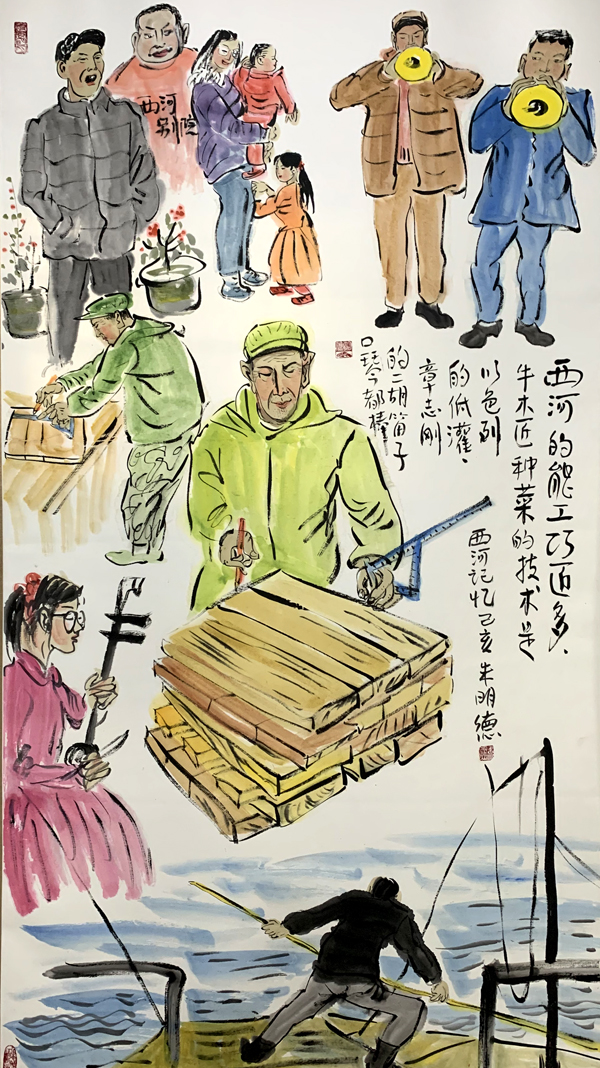 西河
别院
西河的能工巧匠多、
牛木匠种菜的技术是
以色列
的低灌、
章志刚
的二胡笛子
口琴都棒
西河记忆己亥朱明德